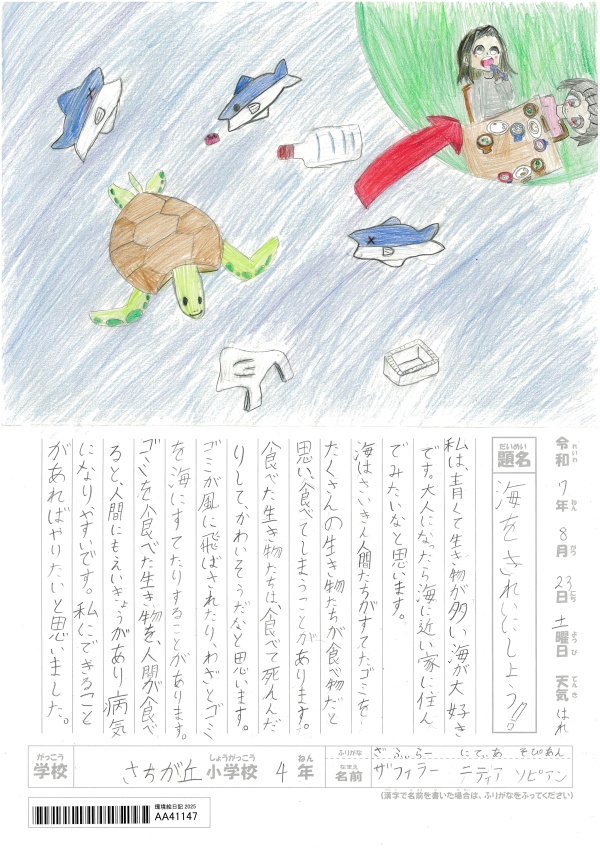 令和7年8月23日土曜日 天気はれ
れいわ ねん がつ にち ようび てんき
だいめい
題名 海をきれいにしよう!!
私は、青くて生き物が多い海が大好き
です。大人になったら海に近い家に住ん
でみたいなと思います。
海はさいきん人間たちがすてたゴミを
たくさんの生き物たちが食べ物だと
思い、食べてしまうことがあります。
食べた生き物たちは、食べて死んんだ
りして、かわいそうだなと思います。
ゴミが風に飛ばされたり、わざとゴミ
を海にすてたりすることがあります。
ゴミを食べた生き物を、人間が食べ
ると、人間にもえいきょうがあり病気
になりやすいです。私にできること
があればやりたいと思いました。
がっこう しょうがっこう ねん
学校 さちが丘小学校4年
ふりがな ざふぃらー にてぃあ そぴあん
なまえ
名前 ザフィラー ニティア ソピアン
(漢字で名前を書いた場合は、ふりがなをふってください)
環境絵日記 2025
AA41147